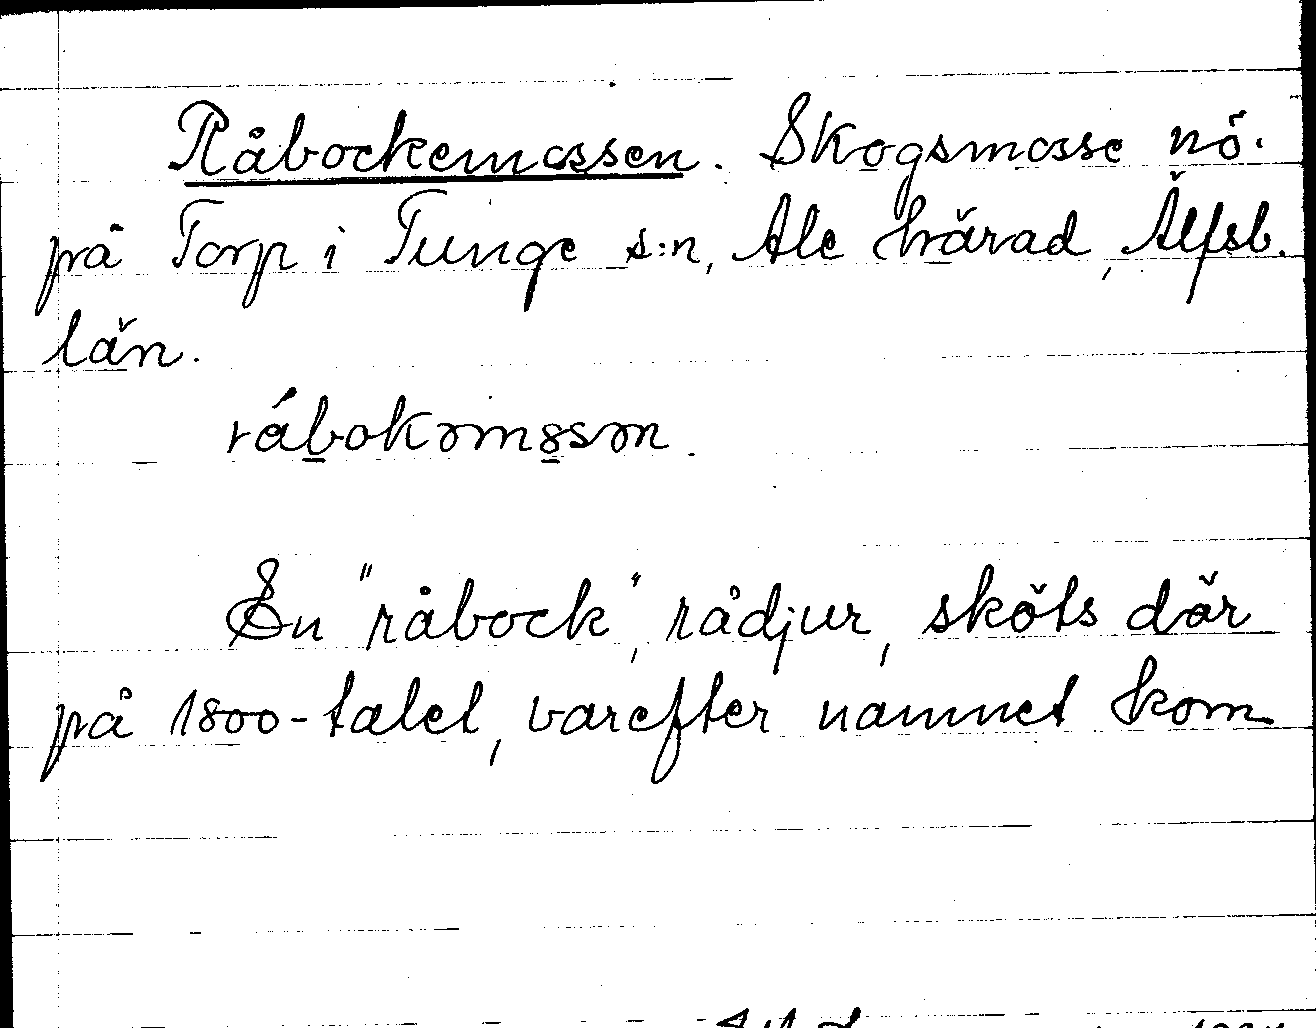 Råbockemossen. Skogsmosse nö.
på Torp i Tunge s:n, Ale härad, Älfsb.
län.
rábokəm8sən.
En "råbock", rådjur, sköts där
på 1800-talet, varefter namnet kom